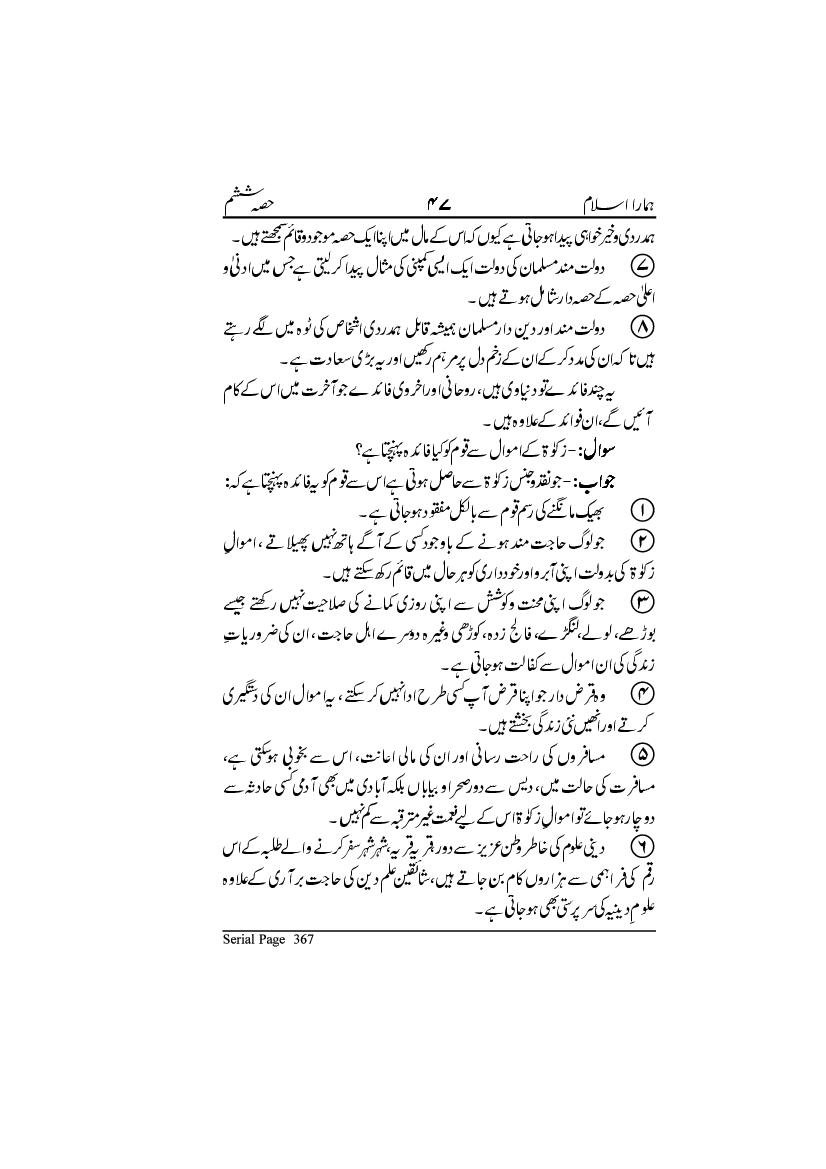 ہمارا اسلام ۴۷ حصہ ششم
ہمدردی و خیر خواہی پیدا ہوجاتی ہے کیوں کہ اس کے مال میں اپنا ایک حصہ موجود و قائم سمجھتے ہیں ۔
۷ دولت مند مسلمان کی دولت ایک ایسی کمپنی کی مثال پیدا کرلیتی ہے جس میں ادنیٰ و
اعلیٰ حصہ کے حصہ دار شامل ہوتے ہیں ۔
۸ دولت مند اور دین دار مسلمان ہمیشہ قابل ہمدردی اشخاص کی ٹوہ میں لگے رہتے
ہیں تاکہ ان کی مدد کرکے ان کے زخم دل پر مرہم رکھیں اور یہ بڑی سعادت ہے ۔
یہ چند فائدے تو دنیاوی ہیں، روحانی اور اخروی فائدے جو آخرت میں اس کے کام
آئیں گے، ان فوائد کے علاوہ ہیں ۔
سوال :- زکوٰۃ کے اموال سے قوم کو کیا فائدہ پہنچتا ہے؟
جواب :- جو نقد و جنس زکوٰۃ سے حاصل ہوتی ہے اس سے قوم کو یہ فائدہ پہنچتا ہے کہ:
۱ بھیک مانگنے کی رسم قوم سے بالکل مفقود ہوجاتی ہے ۔
۲ جو لوگ حاجت مند ہونے کے باوجود کسی کے آگے ہاتھ نہیں پھیلاتے ، اموالِ
زکوٰۃ کی بدولت اپنی آبرو اور خودداری کو ہر حال میں قائم رکھ سکتے ہیں ۔
۳ جو لوگ اپنی محنت و کوشش سے اپنی روزی کمانے کی صلاحیت نہیں رکھتے جیسے
بوڑھے، لولے، لنگڑے، فالج زدہ، کوڑھی وغیرہ دوسرے اہل حاجت ، ان کی ضروریاتِ
زندگی کی ان اموال سے کفالت ہوجاتی ہے ۔
۴ وہ قرض دار جو اپنا قرض آپ کسی طرح ادا نہیں کرسکتے ، یہ اموال ان کی دستگیری
کرتے اور انھیں نئی زندگی بخشتے ہیں ۔
۵ مسافروں کی راحت رسانی اور ان کی مالی اعانت، اس سے بخوبی ہوسکتی ہے،
مسافرت کی حالت میں، دیس سے دور صحرا و بیاباں بلکہ آبادی میں بھی آدمی کسی حادثہ سے
دوچار ہوجائے تو اموالِ زکوٰۃ اس کے لیے نعمت غیر مترقبہ سے کم نہیں ۔
۶ دینی علوم کی خاطر وطن عزیز سے دور قریہ قریہ، شہر شہر سفر کرنے والے طلبہ کے اس
رقم کی فراہمی سے ہزاروں کام بن جاتے ہیں، شائقین علم دین کی حاجت برآری کے علاوہ
علومِ دینیہ کی سرپرستی بھی ہوجاتی ہے ۔
Serial Page 367